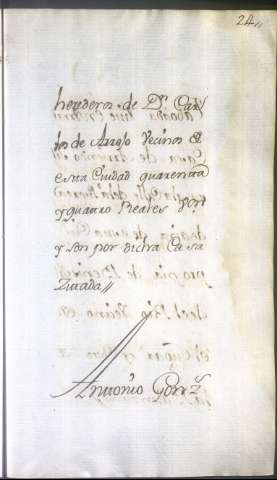 24
herederos de Dn. Car
los de Arroyo Vecinos de
esta Ciudad quarenta
y quatro Reales
y son por dicha Casa
Antonio Gonz.